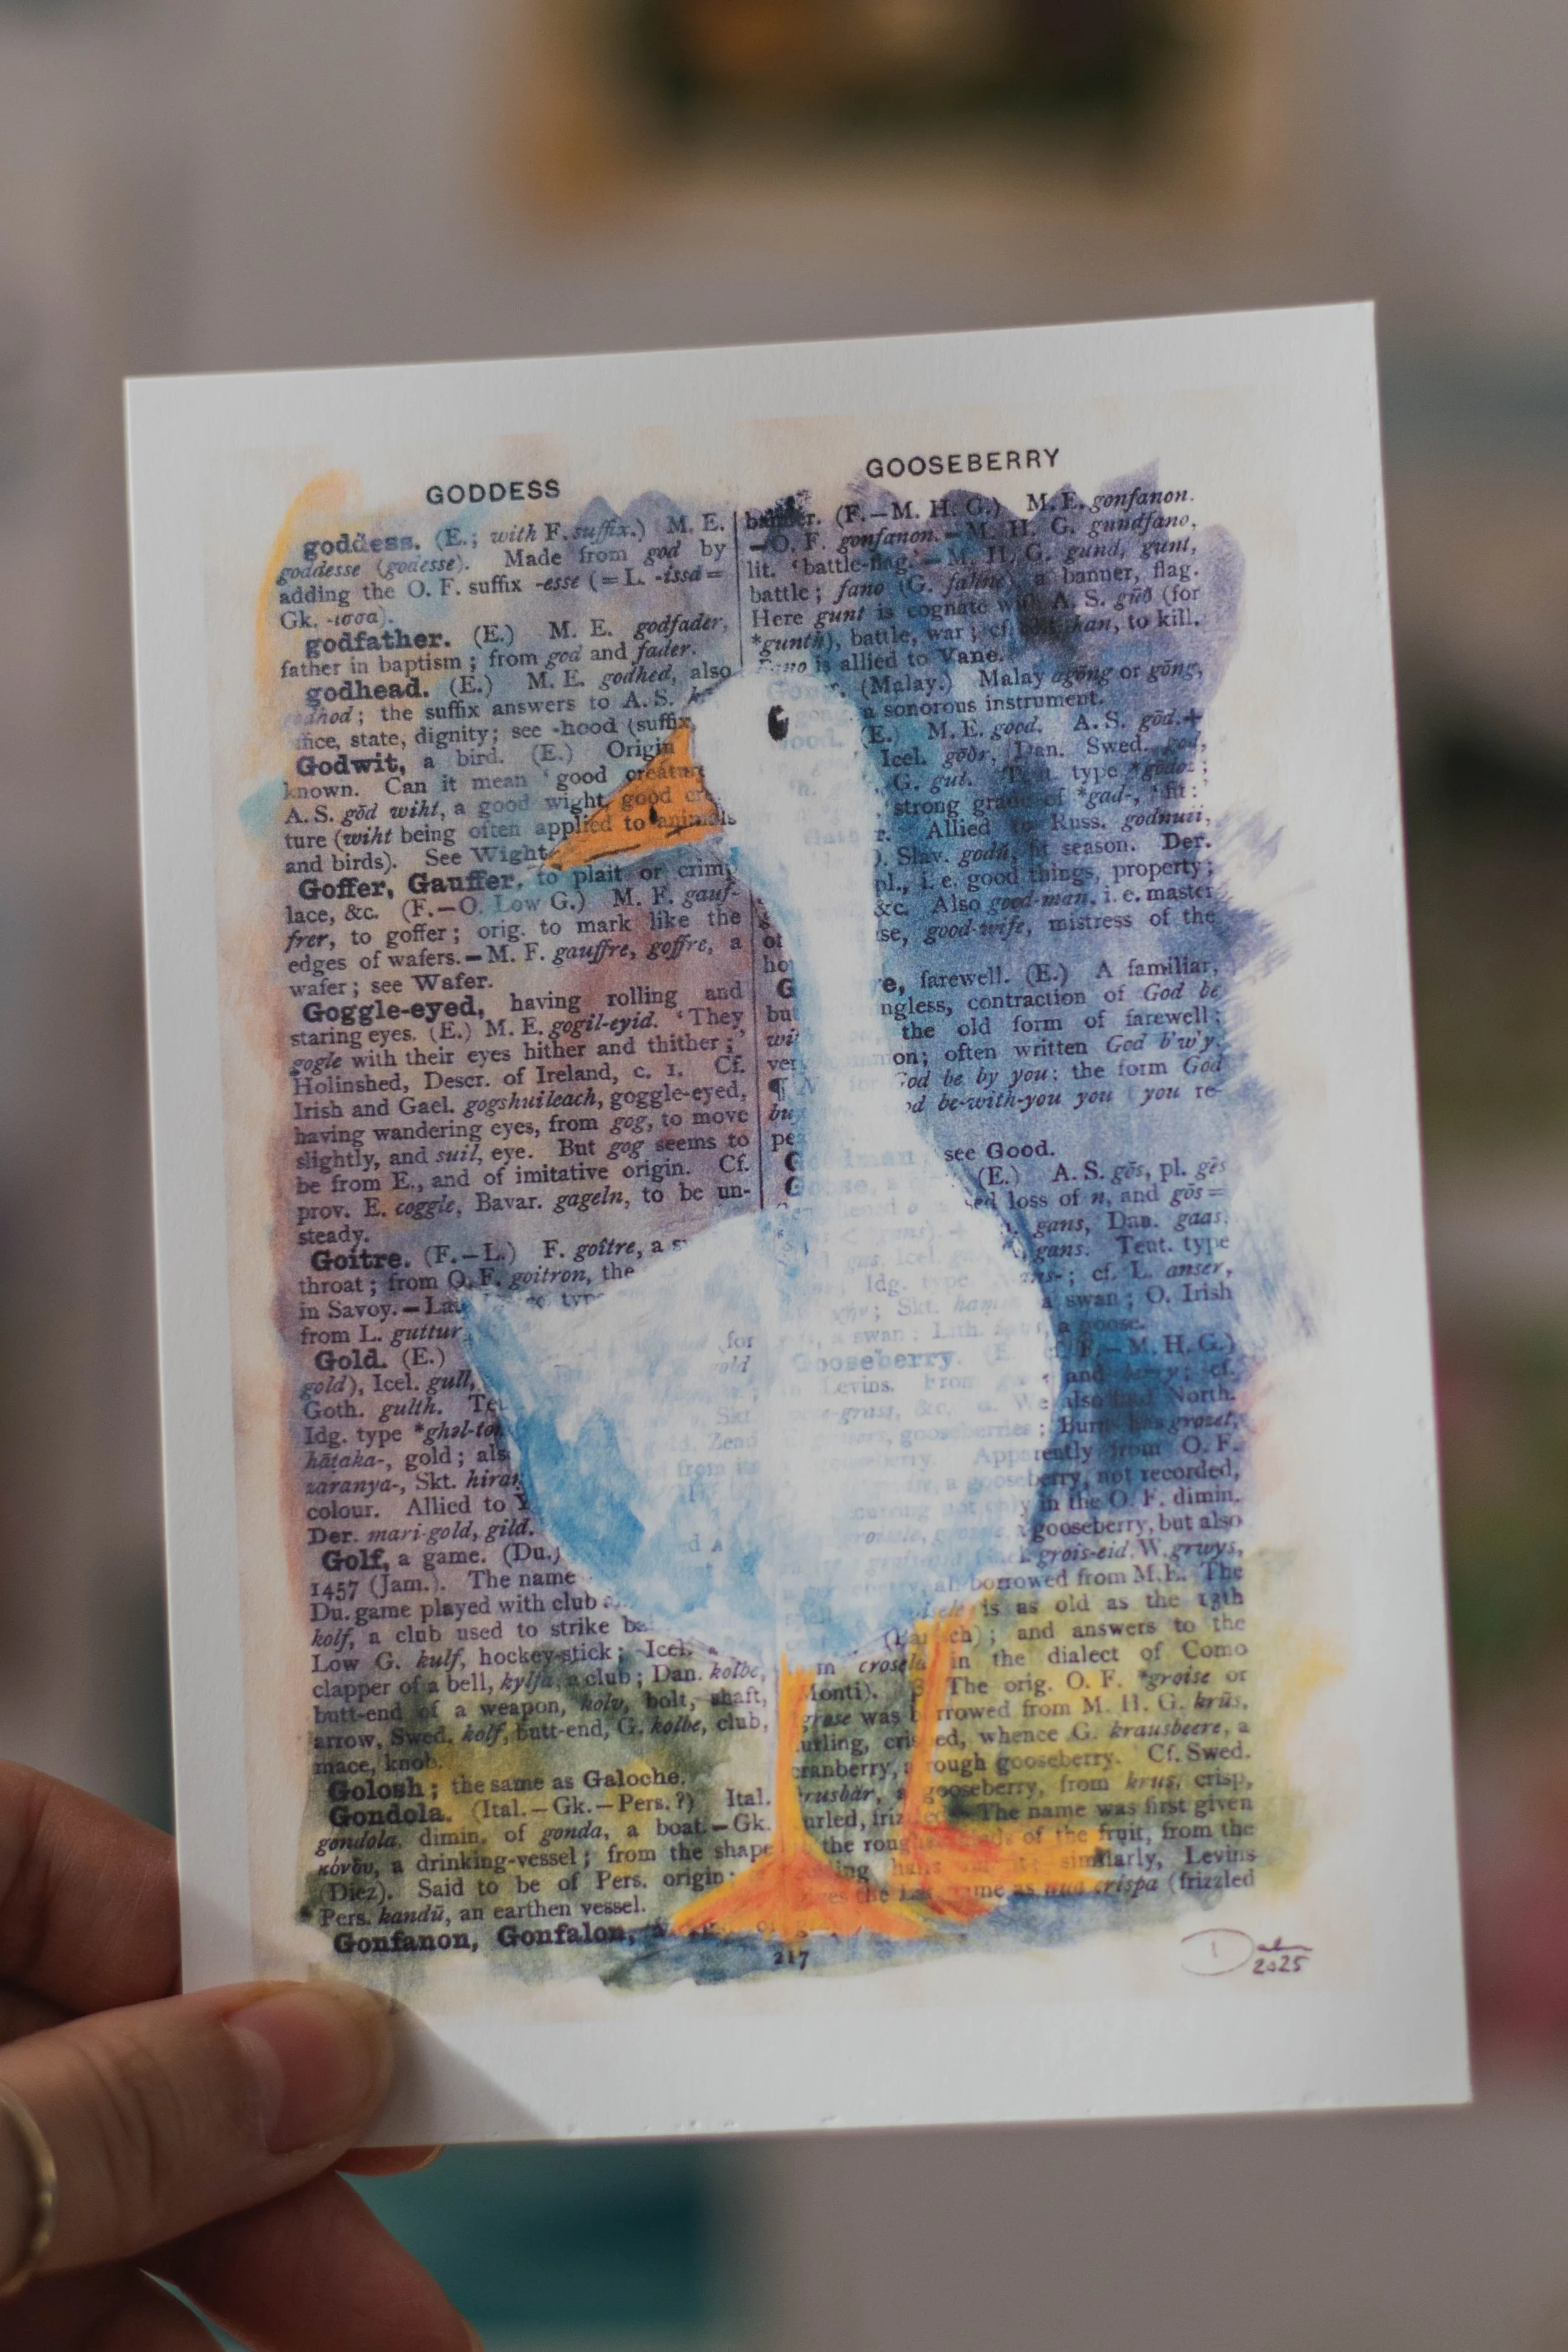 GODDESS
GOOSEBERRY
goddess. (E.; with F. suffix.) M. E.
goddesse (godesse). Made from god by
adding the O. F. suffix -esse (= L. -issa =
Gk. -ισσα).
godfather. (E.) M. E. godfader,
father in baptism; from god and fader.
godhead. (E.) M. E. godhed, also
godhod; the suffix answers to A. S.
state, dignity; see -hood (suffix
Godwit, a bird. (E.) Origin
known. Can it mean 'good creature
A. S. gōd wiht, a good wight, good cre
ture (wiht being often applied to animals
and birds). See Wight.
Goffer, Gauffer, to plait or crimp
lace, &c. (F.—O. Low G.) M. F. gauf-
frer, to goffer; orig. to mark like the
edges of wafers.—M. F. gauffre, goffre, a
wafer; see Wafer.
Goggle-eyed, having rolling and
staring eyes. (E.) M. E. gogil-eyid. 'They
gogle with their eyes hither and thither;'
Holinshed, Descr. of Ireland, c. 1. Cf.
Irish and Gael. gogshuileach, goggle-eyed,
having wandering eyes, from gog, to move
slightly, and suil, eye. But gog seems to
be from E., and of imitative origin. Cf.
prov. E. coggle, Bavar. gageln, to be un-
steady.
Goitre. (F.—L.) F. goître, a
throat; from O. F. goitron, the
in Savoy.—
from L. guttur
Gold. (E.)
gold), Icel. gull,
Goth. gulth.
Idg. type *ghəl-to
hāṭaka-, gold; als
zaranya-, Skt. hiraṇ
colour. Allied to
Der. mari-gold, gild.
Golf, a game. (Du.)
1457 (Jam.). The name
Du. game played with club
kolf, a club used to strike
Low G. kulf, hockey-stick; Icel.
clapper of a bell, kylfa, a club; Dan. kolbe,
butt-end of a weapon, kolv, bolt, shaft,
arrow, Swed. kolf, butt-end, G. kolbe, club,
mace, knob.
Golosh; the same as Galoche.
Gondola. (Ital.—Gk.—Pers.?) Ital.
gondola, dimin. of gonda, a boat.—Gk.
κόνδυ, a drinking-vessel; from the shape
(Diez). Said to be of Pers. origin;
Pers. kandū, an earthen vessel.
Gonfanon, Gonfalon,
banner. (F.—M. H. G.) M. E. gonfanon.
—O. F. gonfanon.—M. H. G. gundfano,
lit. 'battle-flag.'—M. H. G. gund, gunt,
battle; fano (G. fahne), a banner, flag.
Here gunt is cognate with A. S. gūð (for
*gunth), battle, war; cf. to kill.
Fano is allied to Vane.
(Malay.) Malay agōng or gōng,
a sonorous instrument.
(E.) M. E. good. A. S. gōd.+
Icel. gōðr, Dan. Swed. god,
G. gut. Teut. type *gōdoz;
strong grade of *gad-, 'fit:'
Allied to Russ. godnuii,
O. Slav. godŭ, fit season. Der.
pl., i. e. good things, property;
&c. Also good-man, i. e. master
se, good-wife, mistress of the
ho
e, farewell. (E.) A familiar,
ngless, contraction of God be
the old form of farewell;
on; often written God b'w'y.
God be by you; the form God
be-with-you you
see Good.
Goose, (E.) A. S. gōs, pl. gēs
loss of n, and gōs =
gans, Dan. gaas,
gans. Teut. type
cf. L. anser,
Idg. type a swan; O. Irish
a swan; Lith. a goose.
Gooseberry. (E. F.—M. H. G.)
Levins. From and berry; cf.
&c. We also find North.
gooseberries; Burns has grozet,
Apparently from O. F.
a gooseberry, not recorded,
not only in the O. F. dimin.
groisele, gooseberry, but also
grois-eid, W. grwys,
all borrowed from M. E. The
is as old as the 13th
and answers to the
in the dialect of Como
Monti). The orig. O. F. *groise or
was borrowed from M. H. G. krūs,
curling, crisped, whence G. krausbeere, a
cranberry, rough gooseberry. Cf. Swed.
krusbär, a gooseberry, from krus, crisp,
curled, The name was first given
the rough of the fruit, from the
similarly, Levins
name as uua crispa (frizzled
217
2025